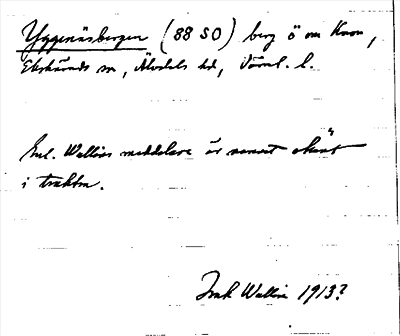 Yggenäsbergen (88 SO) berg ö om Knon,
Ekshärads sn, Älvdals hd, Värml. l.
Enl. Wallins meddelare är namnet okänt
i trakten.
Wallin 1913?